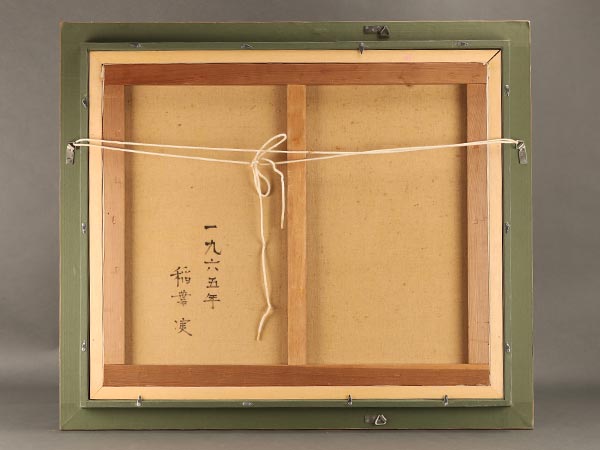 一九六五年
稲葉 実